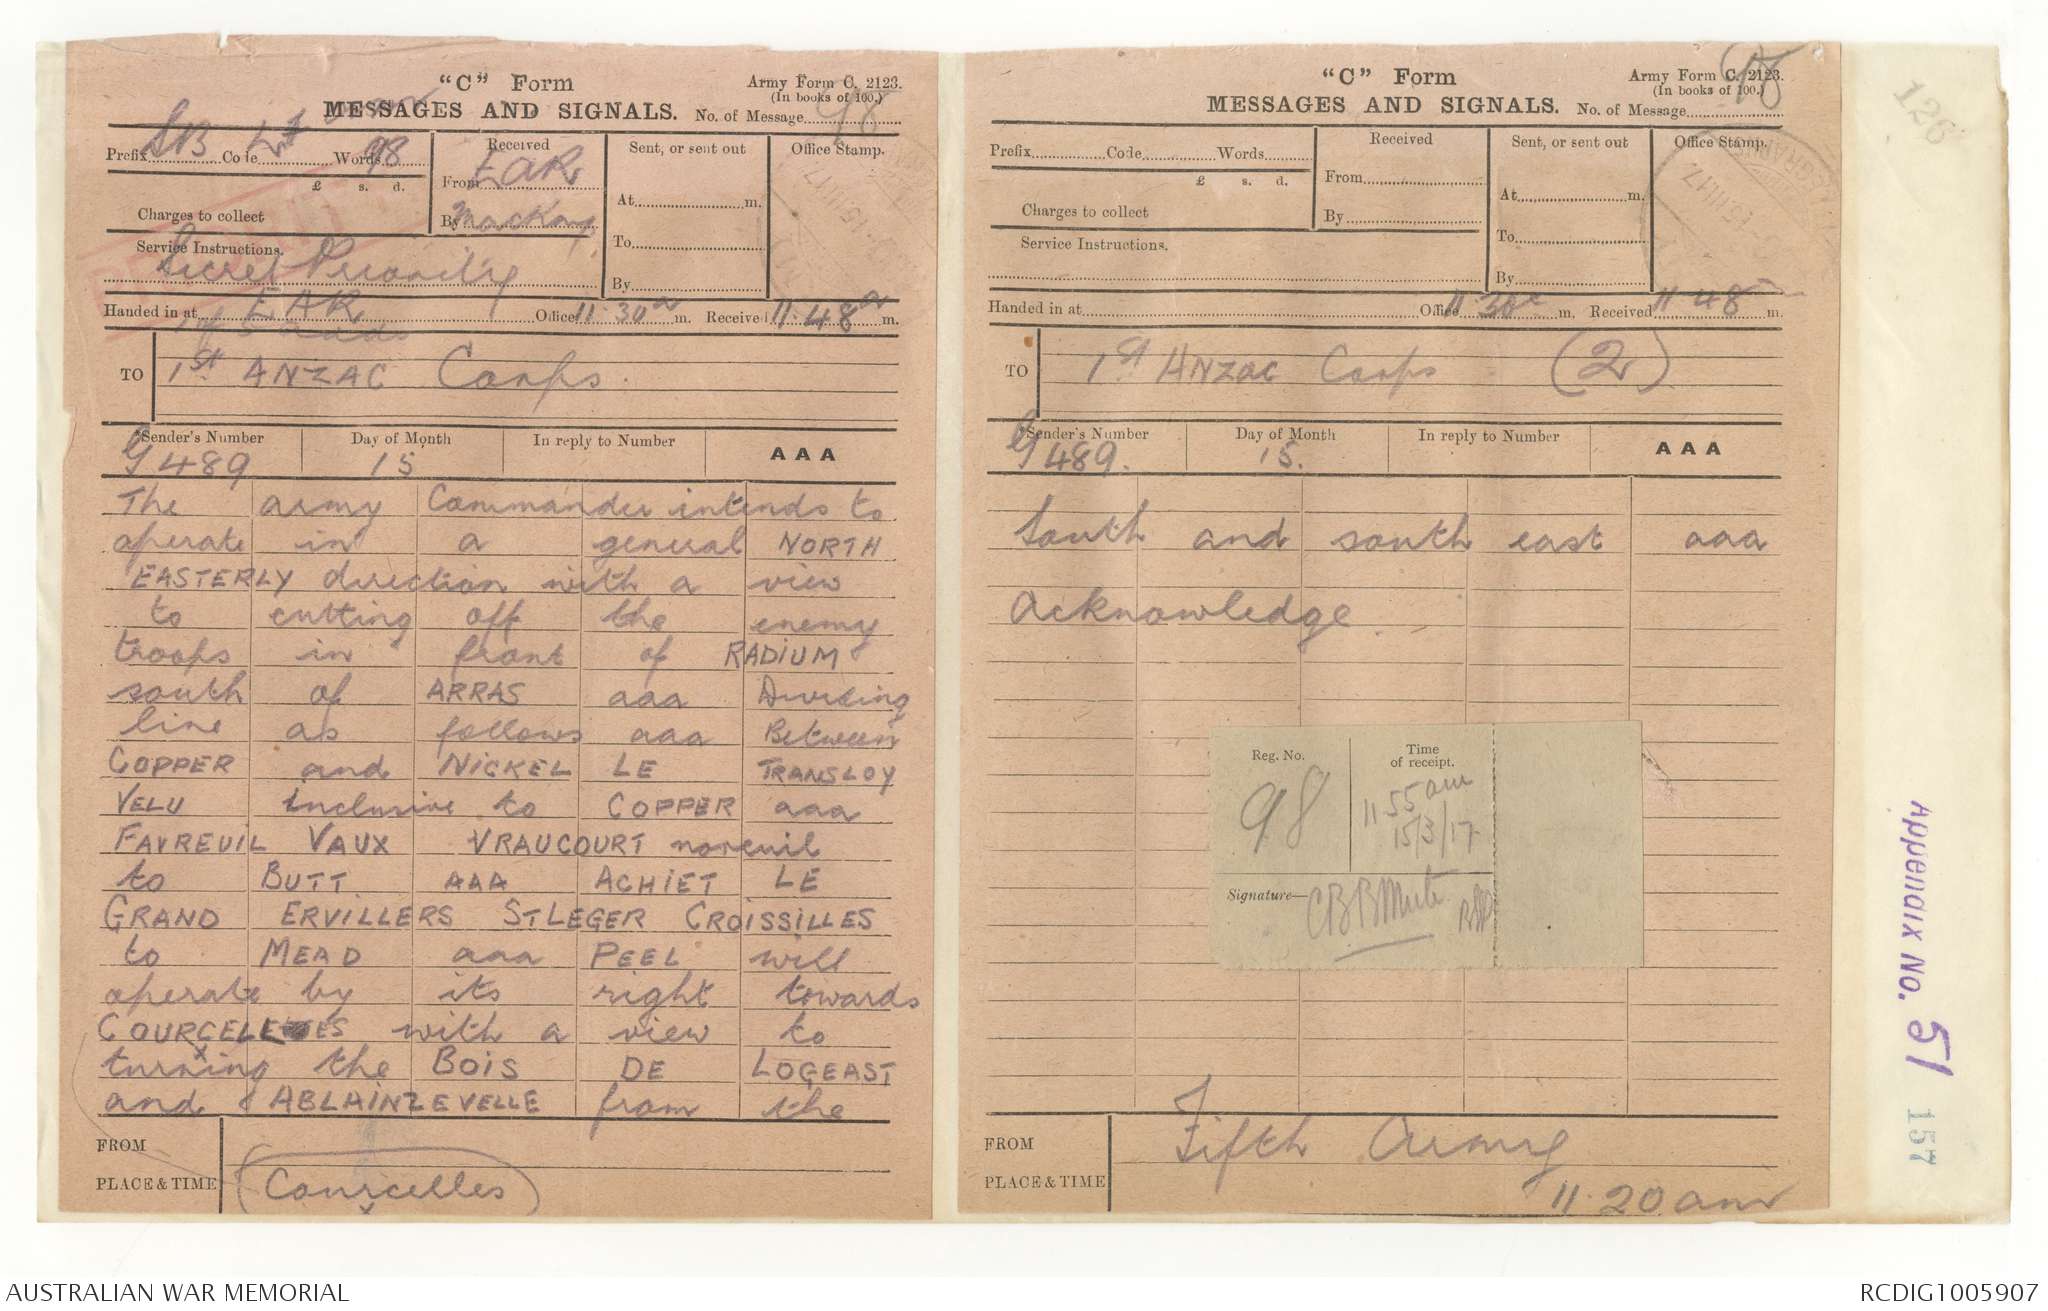 "C" Form
Army Form C. 2123.
(In books of 100.)
MESSAGES AND SIGNALS. No. of Message 98
Prefix SB Code Words 98
£ s. d.
Charges to collect
Received
From EAR
By Mackay
Sent, or sent out
At m.
To
By
Office Stamp.
15 III 17
Service Instructions.
Secret Priority
Handed in at EAR Office 11.30 a m. Received 11.48 a m.
TO 1st ANZAC Corps.
Sender's Number Day of Month In reply to Number AAA
G 489 15
The army Commander intends to
operate in a general NORTH
EASTERLY direction with a view
to cutting off the enemy
troops in front of RADIUM
south of ARRAS aaa Dividing
line as follows aaa Between
COPPER and NICKEL LE TRANSLOY
VELU inclusive to COPPER aaa
FAVREUIL VAUX VRAUCOURT noreuil
to BUTT AAA ACHIET LE
GRAND ERVILLERS ST LEGER CROISSILLES
to MEAD aaa PEEL will
operate by its right towards
COURCELLES with a view to
turning the BOIS DE LOGEAST
and ABLAINZEVELLE from the
FROM
PLACE & TIME
Courcelles
"C" Form
Army Form C. 2123.
(In books of 100.)
MESSAGES AND SIGNALS. No. of Message 98
Prefix Code Words
£ s. d.
Charges to collect
Received
From
By
Sent, or sent out
At m.
To
By
Office Stamp.
15 III 17
Service Instructions.
Handed in at Office 11.30 m. Received 11.48 m.
TO 1st ANZAC Corps (2)
Sender's Number Day of Month In reply to Number AAA
G 489. 15.
South and south east aaa
Acknowledge
Reg. No. Time of receipt.
98 11 55 am
15/3/17
Signature—
FROM Fifth Army
PLACE & TIME 11.20 am
126
Appendix No. 51
157
AUSTRALIAN WAR MEMORIAL
RCDIG1005907